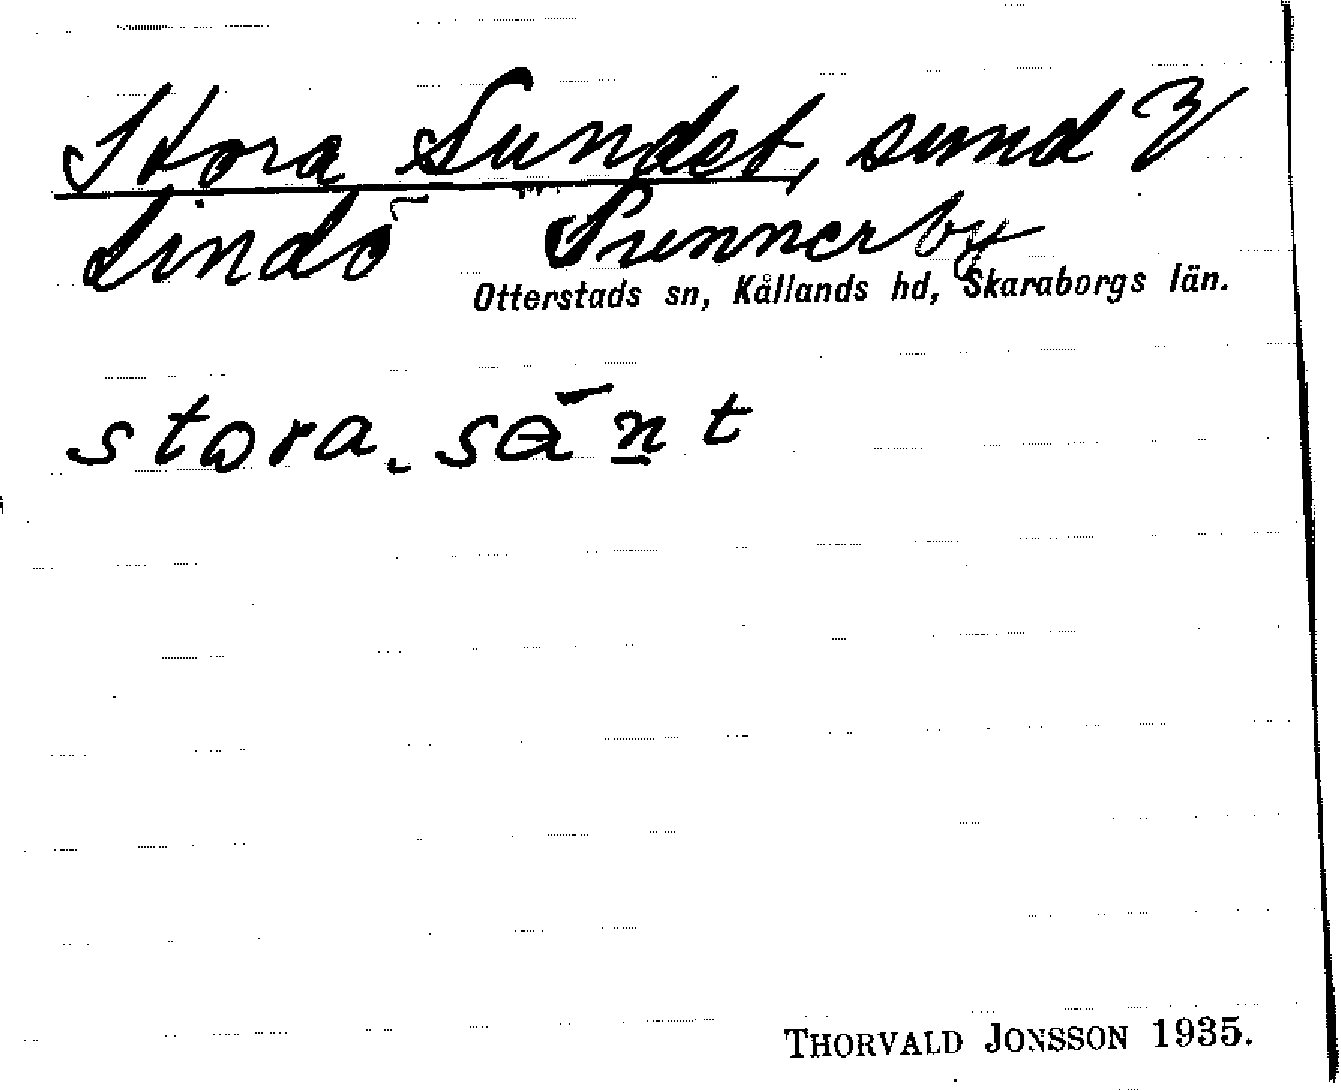 Stora Sundet, sund V
Lindö Sunnerby
Otterstads sn, Kållands hd, Skaraborgs län.
stora sänt
THORVALD JONSSON 1935.